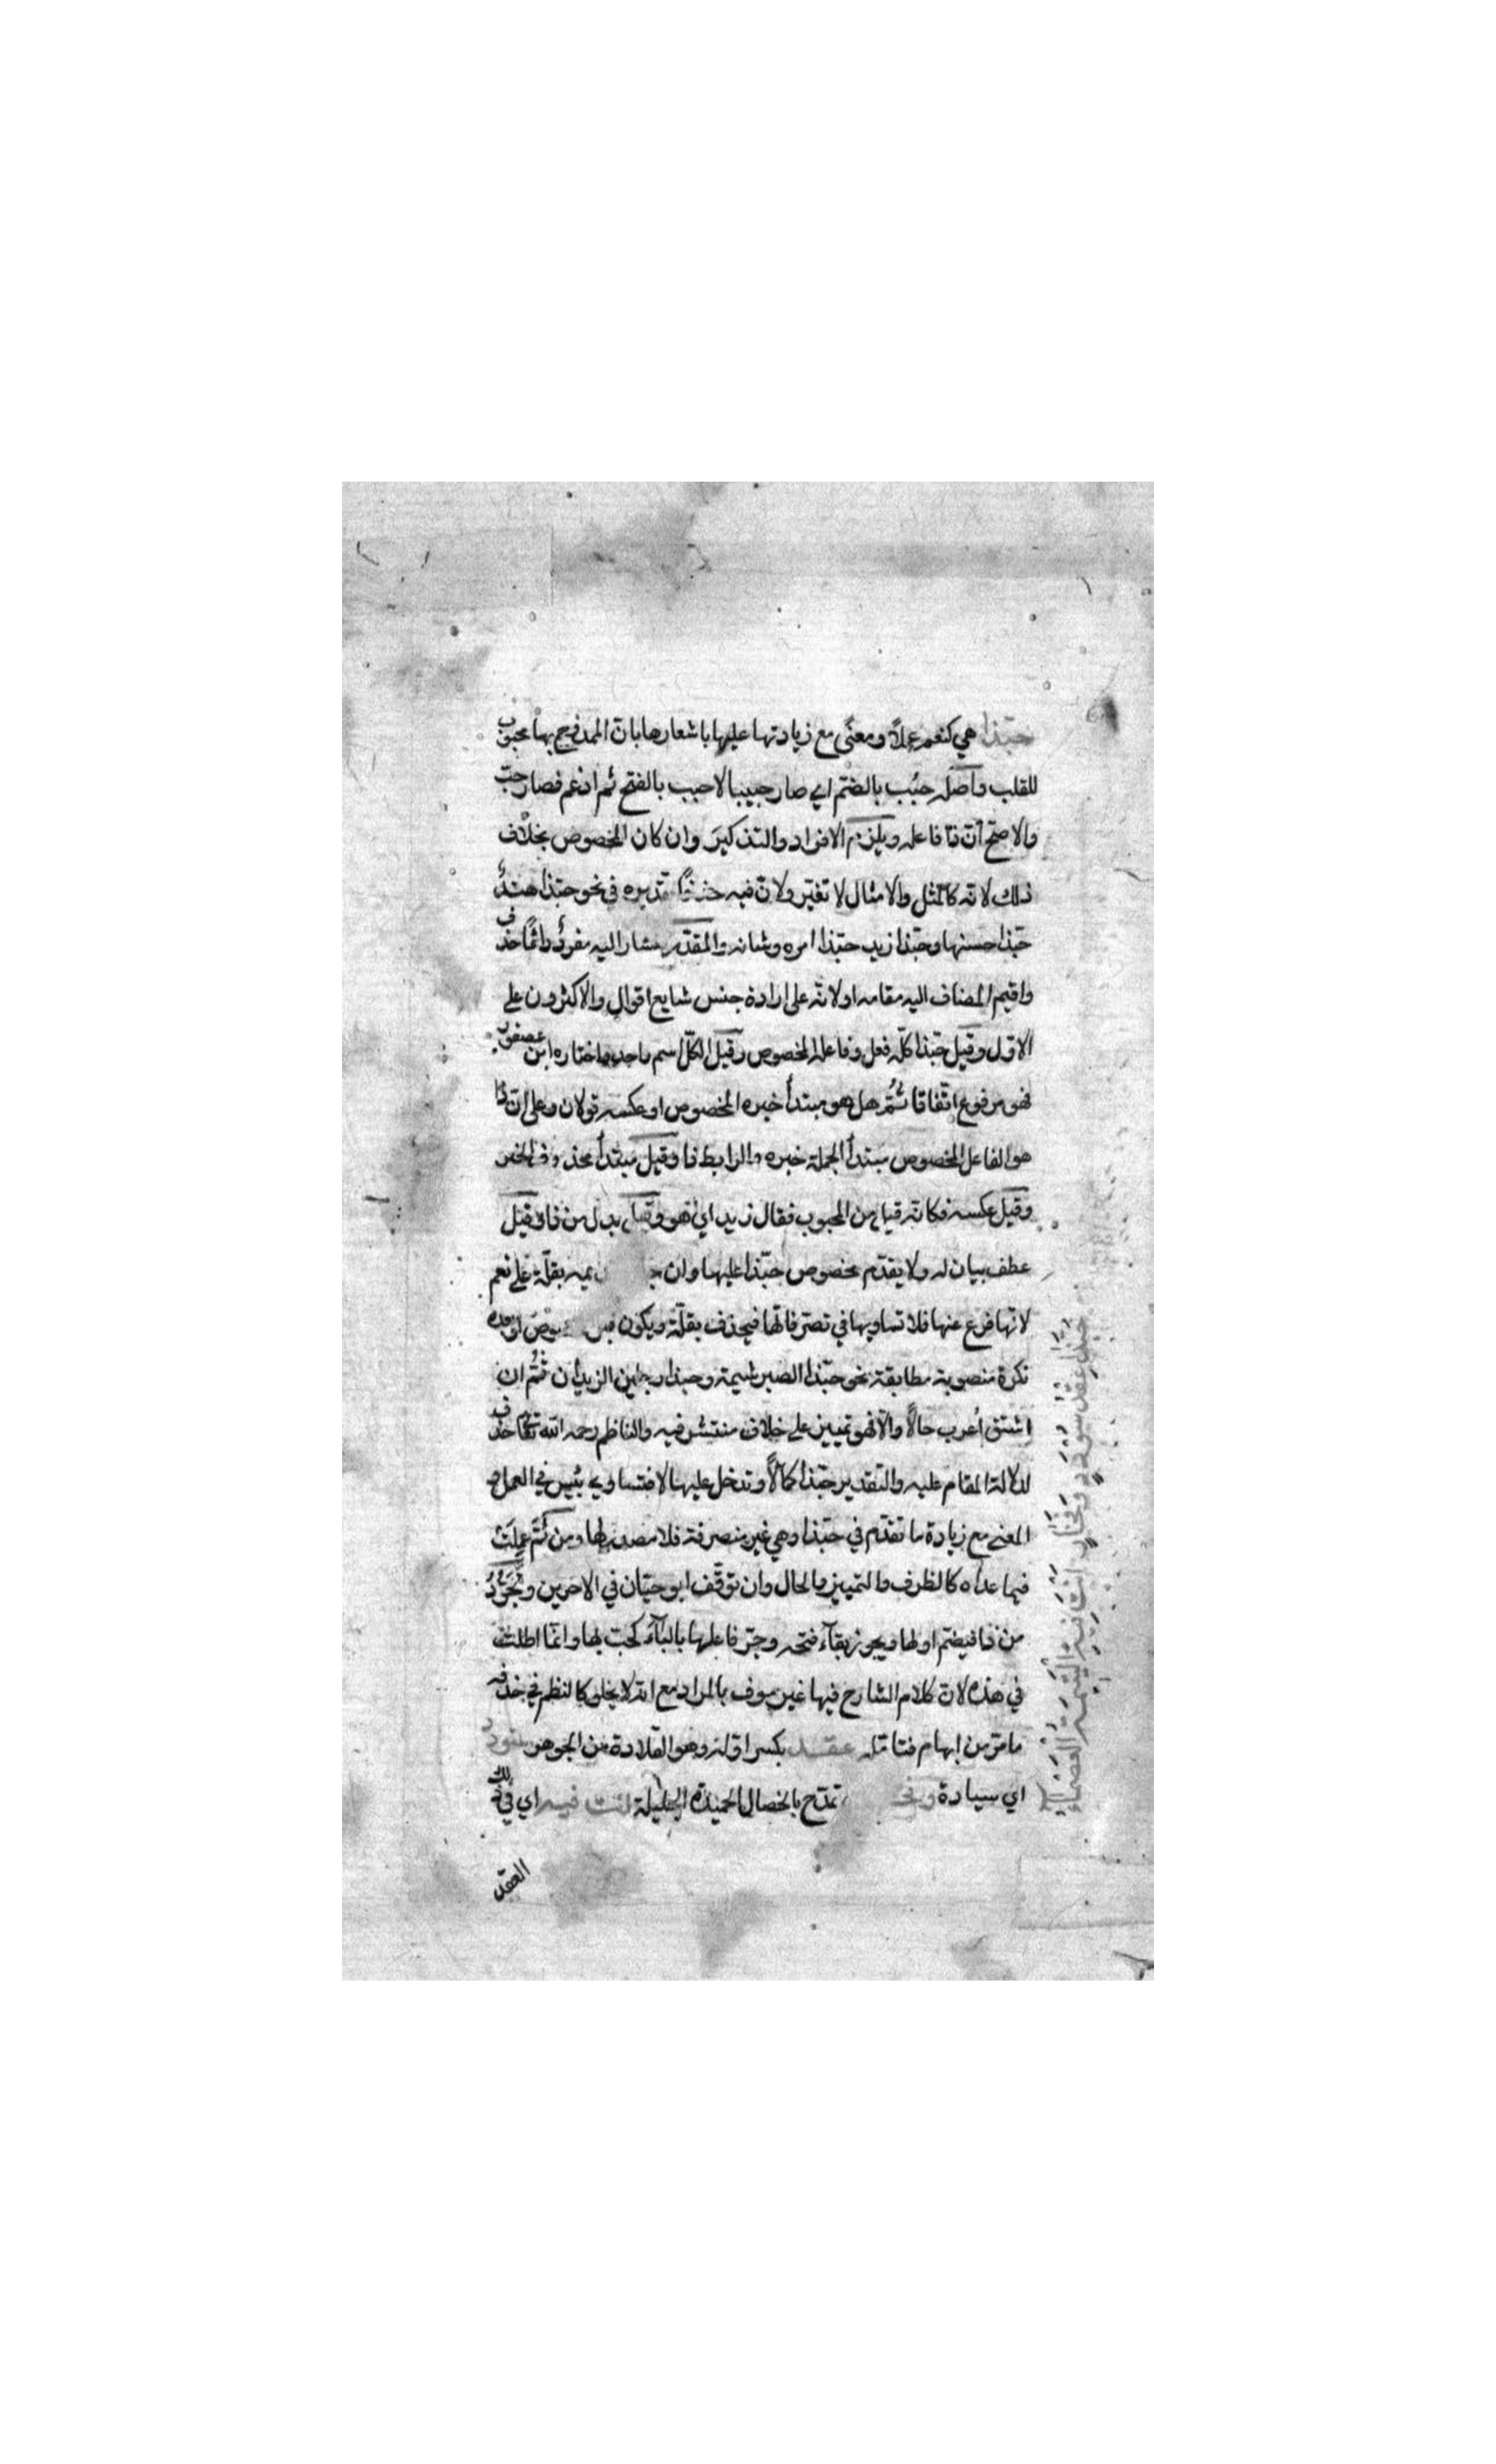 حبّذا هي كنعم عملاً ومعنًى مع زيادتها عليها باشعارها بانّ الممدوح بها محبوب
للقلب واصله حبُب بالضّم اي صار حبيبا لا حبب بالفتح ثم ادغم فصار حبّ
والاصحّ انّ ذا فاعله ويلزم الافراد والتذكير وان كان المخصوص بخلاف
ذلك لانّه كالمثل والامثال لا تغيّر ولانّ فيه حذفًا تقديره في نحو حبّذا هند
حبّذا حسنها وحبّذا زيد حبّذا امره وشانه والمقدّر مشار اليه مفرد دائمًا حذف
واقيم المضاف اليه مقامه او لانّه على ارادة جنس شايع اقوال والاكثرون على
الاوّل وقيل حبّذا كلّه فعل وفاعله المخصوص وقيل الكلّ اسم واحد واختاره ابن عصفور
فهو مرفوع اتّفاقا ثُمّ هل هو مبتدأ خبره المخصوص او عكسه قولان وعلى انّ ذا
هو الفاعل المخصوص مبتدأ الجملة خبره والرابط ذا وقيل مبتدأ محذوف الخبر
وقيل عكسه فكانّه قيل من المحبوب فقال زيد اي هو وقيل بدل من ذا وقيل
عطف بيان له ولا يقدّم مخصوص حبّذا عليها وان بقلّة على نعم
لانّها فرع عنها فلا تساويها في تصرّفاتها فيحذف بقلّة ويكون قبل او بعده
نكرة منصوبة مطابقة نحو حبّذا الصبر شيمة وحبذا رجلين الزيدان ثُمّ ان
اشتق أعرب حالاً والّا فهو تمييز على خلاف منتشر فيه والناظم رحمه الله تعالى حذف
لدلالة المقام عليه والتّقدير حبّذا كمالاً وتدخل عليها لا فتساوي بئس في العمل و
المعنى مع زيادة ما تقدّم في حبّذا وهي غير منصرفة فلا مصدر لها ومن ثَمّ عملت
فيما عداه كالظرف والتمييز والحال وان توقّف ابو حيّان في الاخرين وتجرّد
من ذا فيضمّ اولها ويجوز بقاء فتحه وجرّ فاعلها بالباء كحبّ بها وانّما اطلت
في هذه لانّ كلام الشارح فيها غير موف بالمراد مع انه لا يخلو كالنظم في حذفه
ما مرّ من ابهام فتامّله عقد بكسر اوّله وهو القلادة من الجوهر سؤدد
اي سيادة تمدّح بالخصال الحميدة الجليلة انت فيه اي في ذلك
العقد
حبّذا عقد سؤدد وفخار انت فيه اليتيمة العصماء